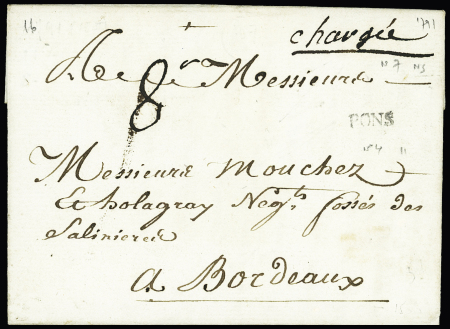 16
1791
chargée
Messieurs
8
PONS
Messieurs Mouchez
et holagray Negts. fossés des
Salinieres
a Bordeaux